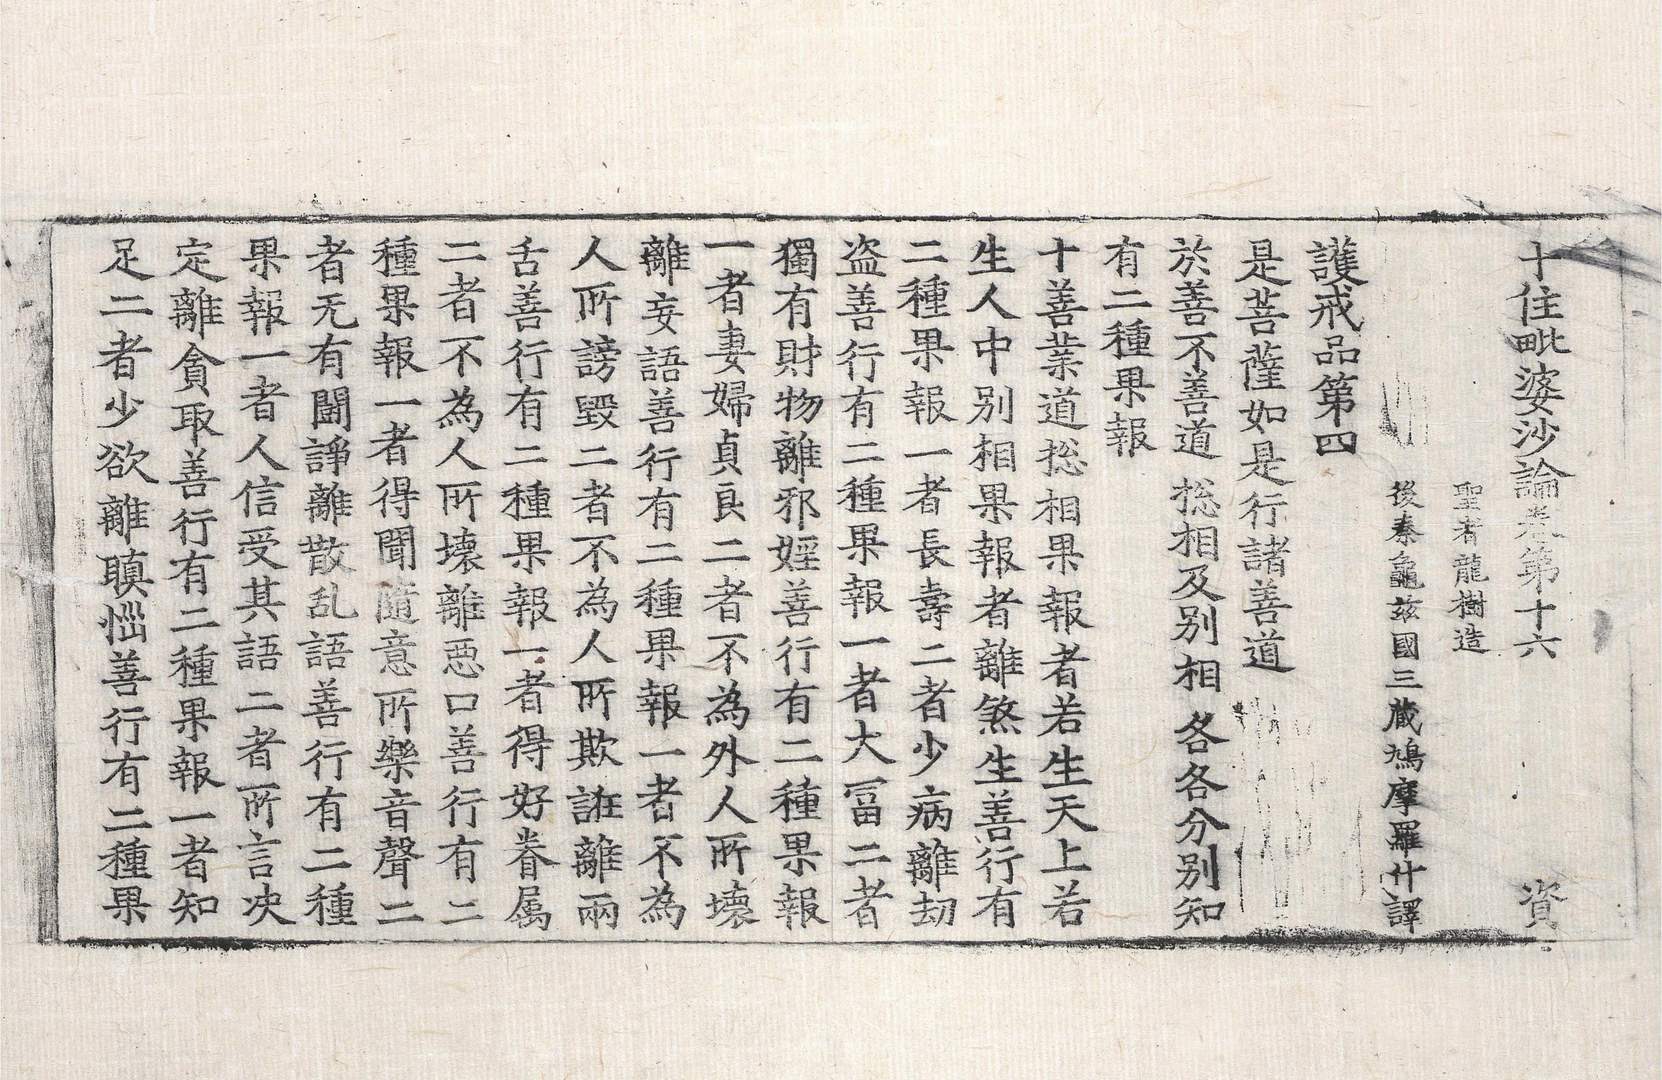 十住毗婆沙論卷第十六 資
聖者龍樹造
後秦龜玆國三藏鳩摩羅什譯
護戒品第四
是菩薩如是行諸善道
於善不善道 捴相及别相 各各分别知
有二種果報
十善業道捴相果報者若生天上若
生人中别相果報者離煞生善行有
二種果報一者長壽二者少病離刧
盗善行有二種果報一者大冨二者
獨有財物離邪婬善行有二種果報
一者妻婦貞良二者不為外人所壞
離妄語善行有二種果報一者不為
人所謗毀二者不為人所欺誑離兩
舌善行有二種果報一者得好眷屬
二者不為人所壞離惡口善行有二
種果報一者得聞隨意所樂音聲二
者无有鬪諍離散乱語善行有二種
果報一者人信受其語二者所言决
定離貪取善行有二種果報一者知
足二者少欲離瞋惱善行有二種果